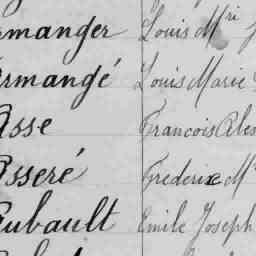 Armanger Louis Mri
Armangé Louis Marie
Asse Francois Alex
Asseré Frederix M
Aubault Emile Joseph